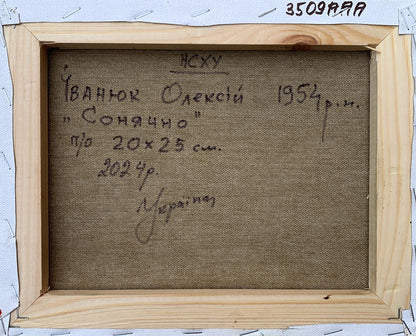 3509AAA
НСХУ
Іванюк Олексій 1954 р.н.
„Сонячно"
п/о 20x25 см.
2024р.
Україна